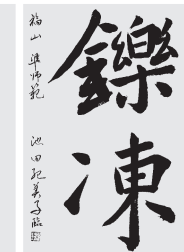 鑠凍
福山 準師範 池田紀美子臨